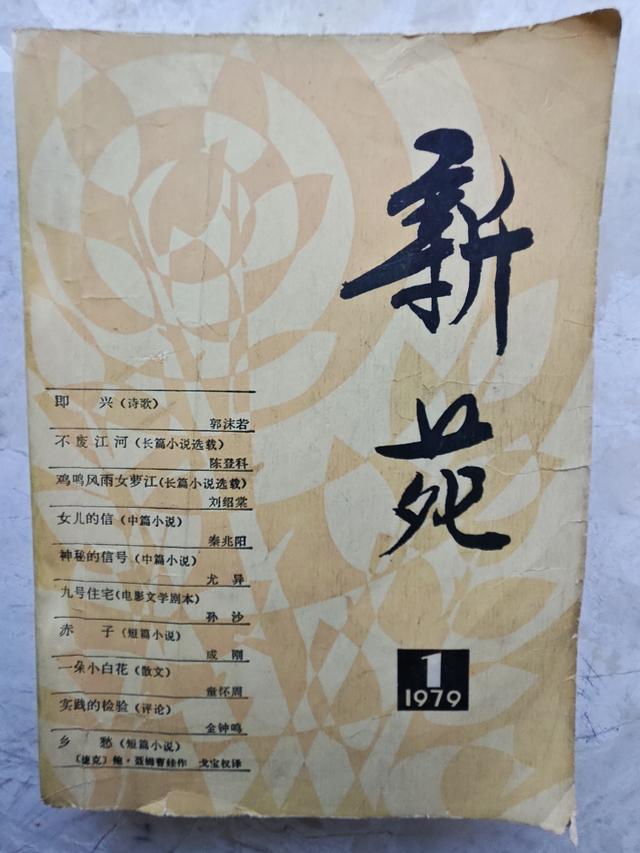 新苑
即 兴（诗歌）
郭沫若
不废江河（长篇小说选载）
陈登科
鸡鸣风雨女萝江（长篇小说选载）
刘绍棠
女儿的信（中篇小说）
秦兆阳
神秘的信号（中篇小说）
尤 异
九号住宅（电影文学剧本）
孙 沙
赤 子（短篇小说）
成 刚
一朵小白花（散文）
童怀周
实践的检验（评论）
金钟鸣
乡 愁（短篇小说）
〔捷克〕鲍·聂姆曹娃作 戈宝权译
1
1979